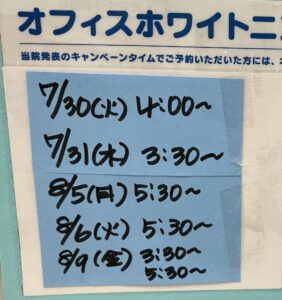 オフィスホワイトニ
当院発表のキャンペーンタイムでご予約いただいた方には、
7/30(火) 4:00~
7/31(水) 3:30~
8/5(月) 5:30~
8/6(火) 5:30~
8/9(金) 3:30~
5:30~